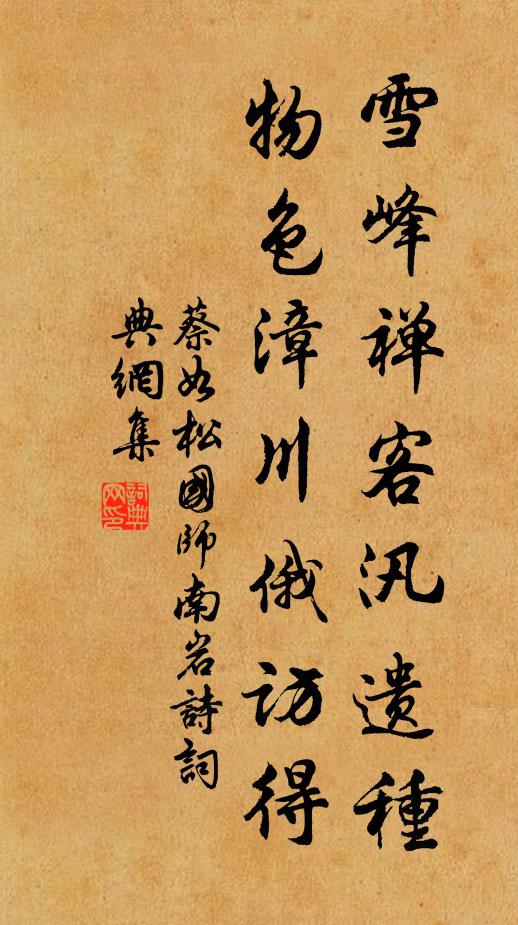 雪峰禅客汛遗種
物色漳川俄访得
蔡如松國師南岩詩詞
典網集
詞典
网印